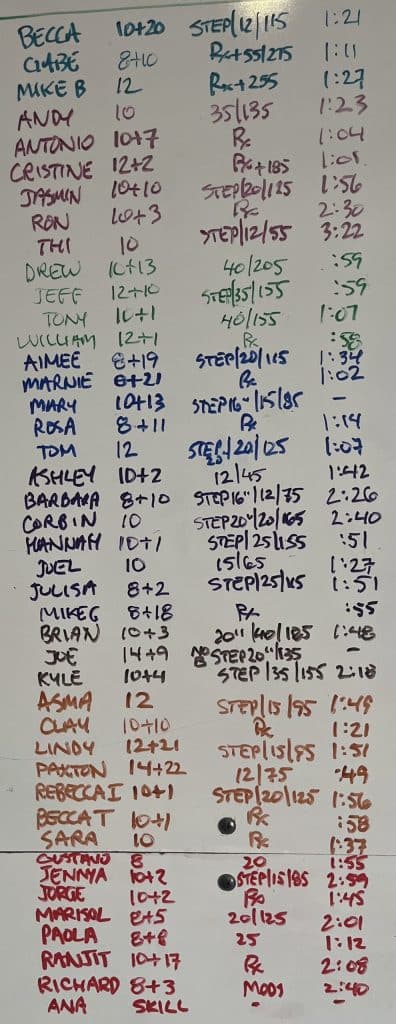 BECCA 10+20 STEP/12/115 1:21
GABE 8+10 Rx+55/275 1:11
MIKE B 12 Rx+255 1:27
ANDY 10 35/135 1:23
ANTONIO 10+7 Rx 1:04
CRISTINE 12+2 Rx+185 1:01
JASMIN 10+10 STEP/20/125 1:56
RON 10+3 Rx 2:30
THI 10 STEP/12/55 3:22
DREW 10+13 40/205 :59
JEFF 12+10 STEP/35/155 :59
TONY 10+1 40/155 1:07
WILLIAM 12+1 Rx :58
AIMEE 8+19 STEP/20/115 1:34
MARNIE 8+21 Rx 1:02
MARY 10+13 STEP16"/15/85 -
ROSA 8+11 Rx 1:14
TOM 12 STEP/20/125 1:07
ASHLEY 10+2 12/45 1:42
BARBARA 8+10 STEP16"/12/75 2:26
CORBIN 10 STEP20"/20/165 2:40
HANNAH 10+1 STEP/25/155 :51
JOEL 10 15/65 1:27
JULISA 8+2 STEP/25/115 1:51
MIKE G 8+18 Rx :55
BRIAN 10+3 20"/40/185 1:48
JOE 14+9 NO B STEP20"/135 -
KYLE 10+4 STEP/35/155 2:18
ASMA 12 STEP/15/95 1:49
CLAY 10+10 Rx 1:21
LINDY 12+21 STEP/15/95 1:51
PAXTON 14+22 12/75 :49
REBECCA I 10+1 STEP/20/125 1:56
BECCA T 10+1 Rx :58
SARA 10 Rx 1:37
GUSTAVO 8 20 1:55
JENNYA 10+2 STEP/15/85 2:59
JORGE 10+2 Rx 1:45
MARISOL 8+5 20/125 2:01
PAOLA 8+8 25 1:12
RANJIT 10+17 Rx 2:08
RICHARD 8+3 MODS 2:40
ANA SKILL - -